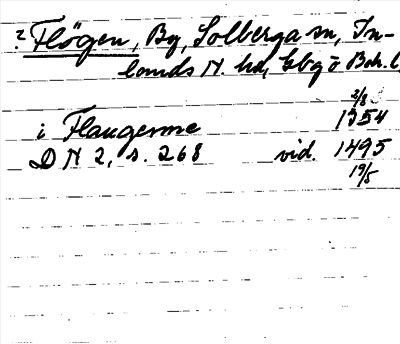 ? Flögen, By, Solberga sn, In-
lands N. hd, Gbg o Boh. l.
2/8
i Flaugenne 1354
D N 2, s. 268 vid. 1495
19/5